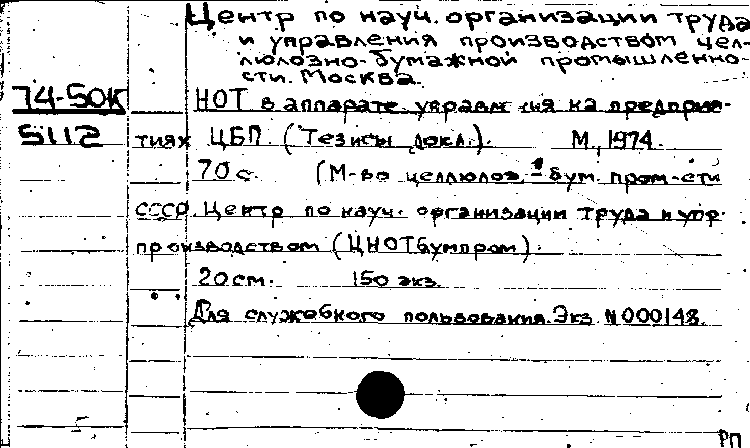 Центр по науч. организации труда
и управления производством цел-
люлозно-бумажной промышленно-
сти. Москва.
74-50К НОТ в аппарате управления на предприя-
5112 тиях ЦБП. (Тезисы докл.). М., 1974.
70 с. (М-во целлюлоз.-бум. пром-сти
СССР. Центр по науч. организации труда и упр.
производством (ЦНОТбумпром).
20 см. 150 экз.
Для служебного пользования. Экз. N 000148.
РП